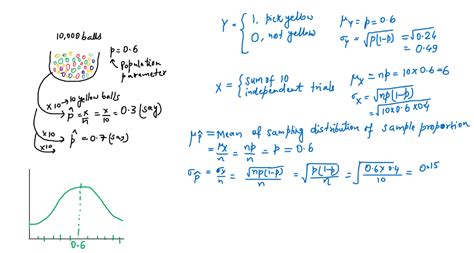 10,000 balls
p = 0.6
Population
parameter
x10 → 10 yellow balls
p̂ = x/n = x/10 = 0.3 (say)
x10
p̂ = 0.7 (say)
x10
0.6
Y = { 1, pick yellow
0, not yellow
μY = p = 0.6
σY = √p(1-p) = √0.24
= 0.49
X = { sum of 10
independent trials
μX = np = 10 x 0.6 = 6
σX = √np(1-p)
= √10 x 0.6 x 0.4
μp̂ = Mean of sampling distribution of sample proportion
= μX/n = np/n = p = 0.6
σp̂ = σX/n = √np(1-p)/n = √p(1-p)/n = √0.6 x 0.4/10 = 0.15